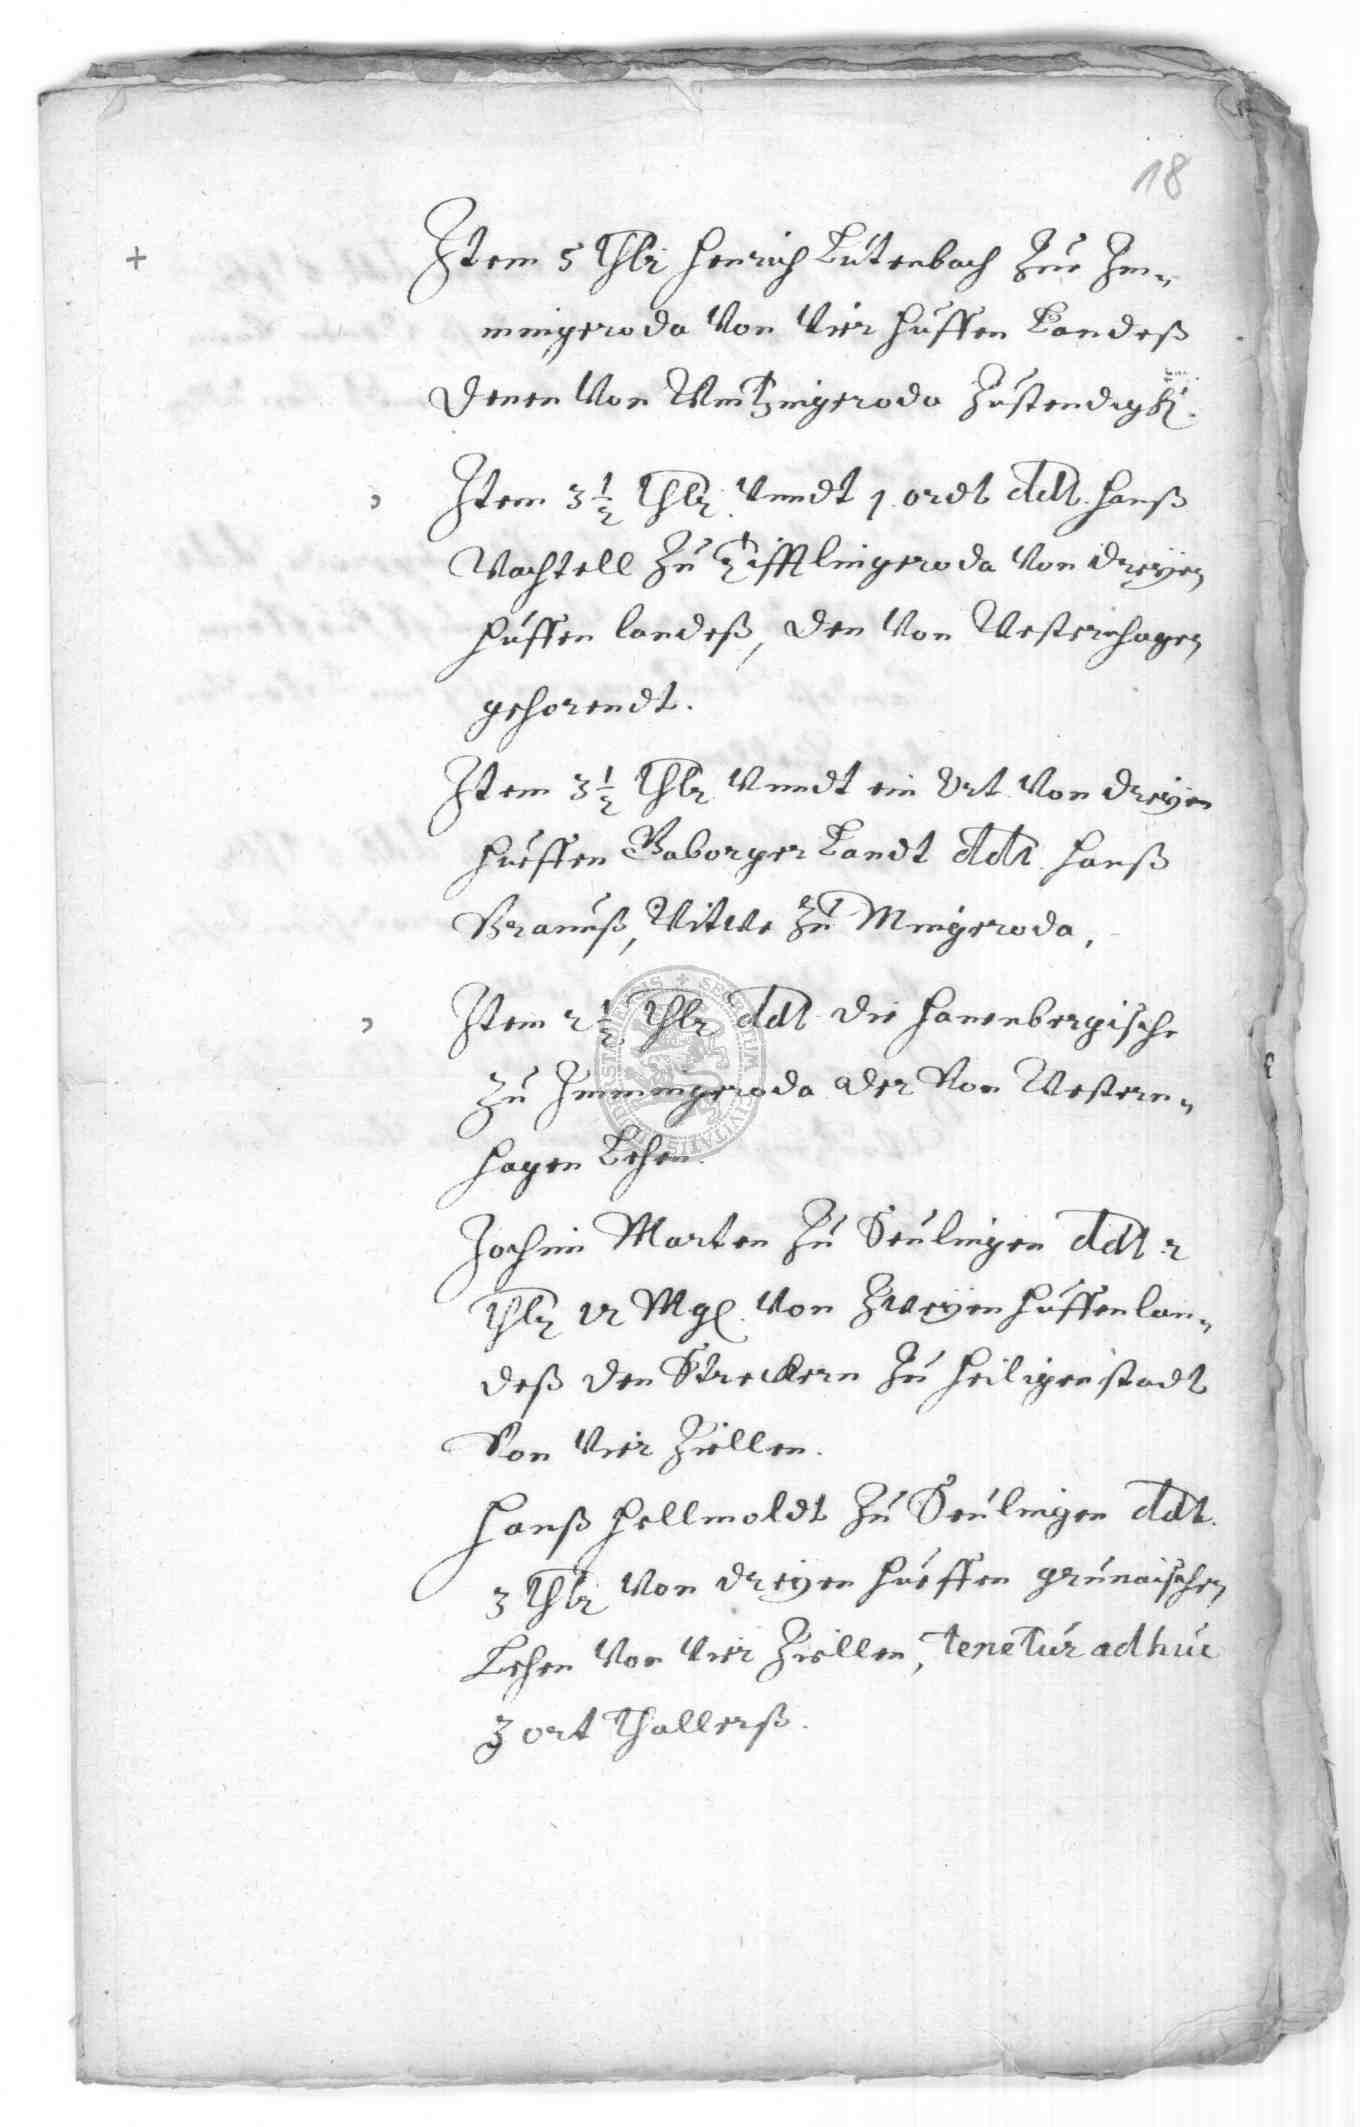 18
+ Item 5 Thlr Henrich Lutenbach Zue Im-
mingeroda Von Vier Huffen Landeß
denen Von Wintzingeroda Zustendigk.
Item 3 1/2 Thlr. Vnndt 1. ordt ddt. Hanß
Wachtell Zu Tifftlingeroda Von dreyen
Huffen landeß, den Von Westernhagen
gehorendt.
Item 3 1/2 Thlr Vnndt ein Ort Von dreyen
Hueffen Gaborger Landt ddt. Hanß
Braunß, Witwe Zu Mingeroda,
Item 2 1/2 Thlr ddt die Hanenbergische
Zu Immingeroda der Von Western-
hagen Lehen.
Jochim Marten Zu Seulingen ddt 2
Thlr 12 Mgl. Von Zweyen Huffen lan-
deß den Streckern Zu Heiligenstadt
Von Vier Ziellen.
Hanß Hellmoldt Zu Seulingen ddt.
3 Thlr Von dreyen Hueffen grunaischen
Lehen Von Vier Ziellen, tenetur adhuc
3 ort Thallerß.
SECRETUM CIVITATIS